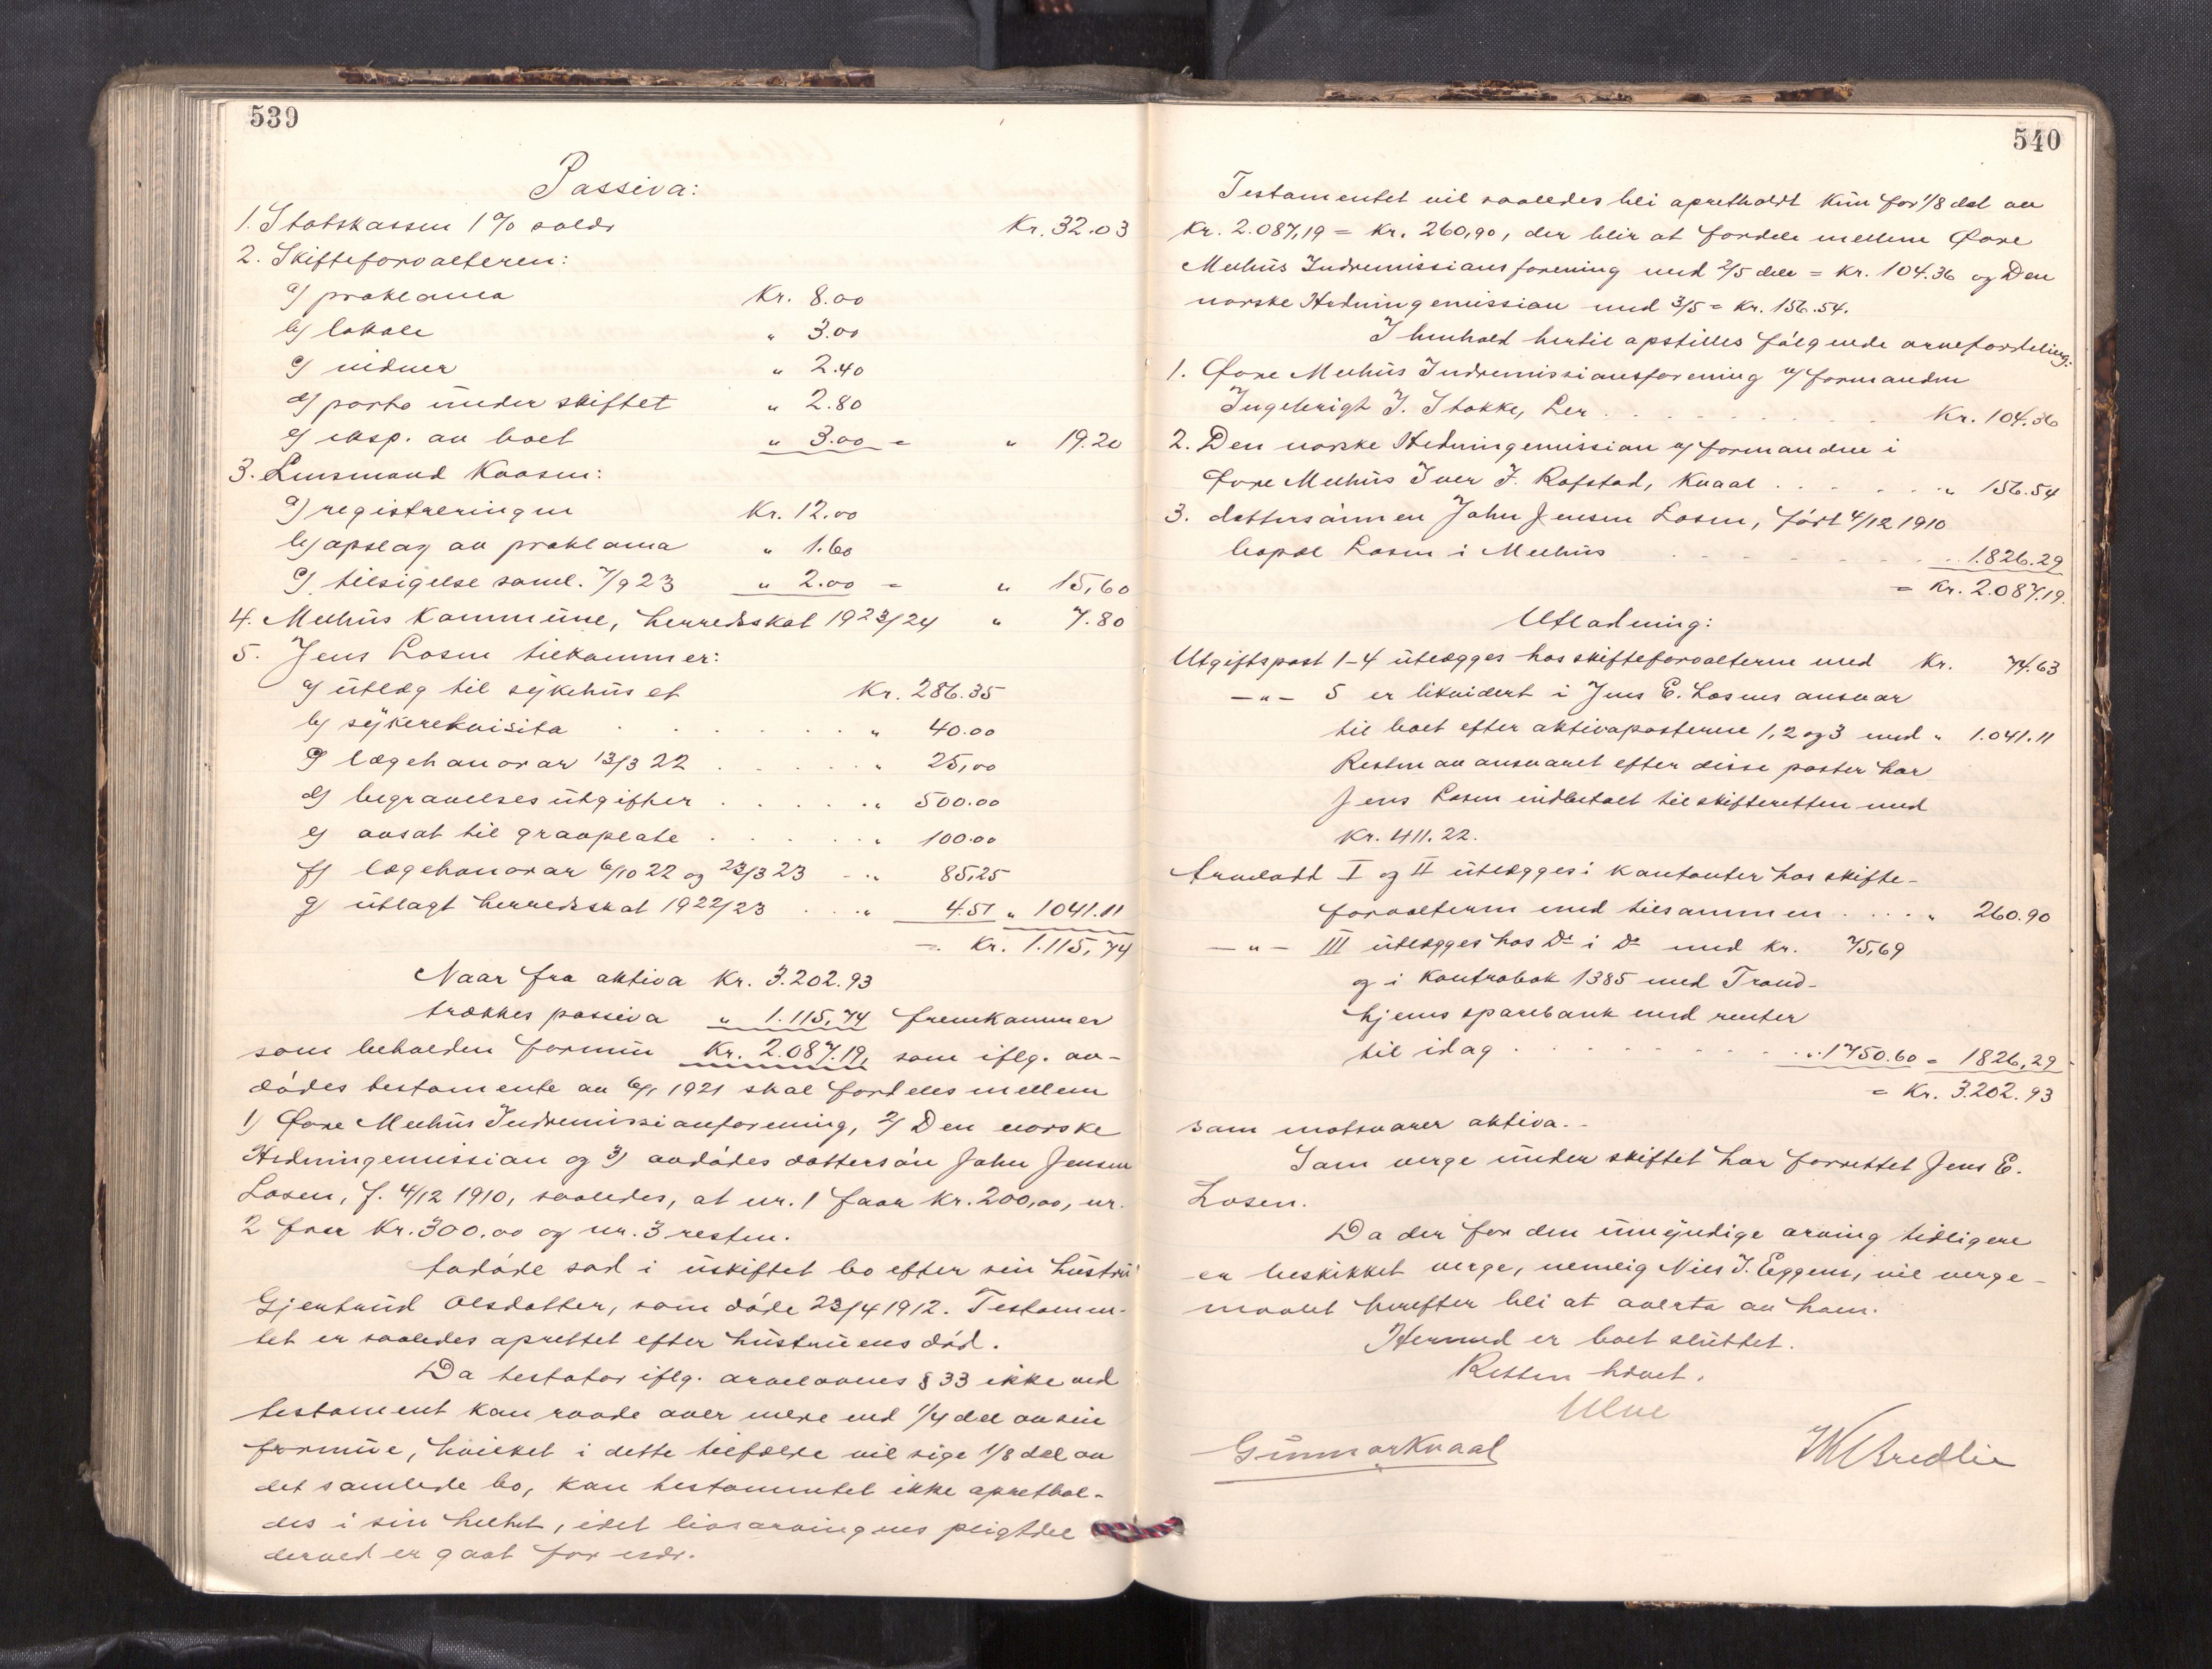 539
Passiva:
1. Statskassen 1% saldo Kr. 32.03
2. Skifteforvalteren:
a) proklama Kr. 8.00
b) lokale " 3.00
c) vidner " 2.40
d) porto under skiftet " 2.80
e) eksp. av boet " 3.00 = " 19.20
3. Lensmand Kaasen:
a) registreringen Kr. 12.00
b) opslag av proklama " 1.60
c) tilsigelse saml. 7/9 23 " 2.00 = " 15,60
4. Melhus kommune, herredsskat 1923/24 " 7.80
5. Jens Losen tilkommer:
a) utlæg til sykehuset Kr. 286.35
b) sykerekvisita . . . . . . " 40.00
c) lægehonorar 13/3 22 . . . . . " 25,00
d) begravelsesutgifter . . . . . " 500.00
e) avsat til gravplate . . . . . " 100.00
f) lægehonorar 6/10 22 og 23/3 23 - " 85,25
g) utlagt herredsskat 1922/23 . . " 4.51 " 1041.11
= Kr. 1.115,74
Naar fra aktiva Kr. 3.202.93
trækkes passiva " 1.115,74 fremkommer
som beholden formue Kr. 2.087.19, som iflg. av-
dødes testamente av 6/1 1921 skal fordeles mellem
1) Øvre Melhus Indremissionforening, 2) Den norske
Hedningemission og 3) avdødes dattersøn John Jensen
Losen, f. 4/12 1910, saaledes, at nr. 1 faar Kr. 200,00, nr.
2 faar Kr. 300.00 og nr. 3 resten.
Avdøde sad i uskiftet bo efter sin hustru
Gjertrud Olsdatter, som døde 23/4 1912. Testamen-
tet er saaledes oprettet efter hustruens død.
Da testator iflg. arvelovens § 33 ikke ved
testament kan raade over mere end 1/4 del av sin
formue, hvilket i dette tilfælde vil sige 1/8 del av
det samlede bo, kan testamentet ikke oprethol-
des i sin helhet, idet livsarvingens pligtdel
derved er gaat for nær.
540
Testamentet vil saaledes bli opretholdt kun for 1/8 del av
Kr. 2.087,19 = Kr. 260,90, der blir at fordele mellem Øvre
Melhus Indremissionsforening med 2/5 dele = Kr. 104.36 og Den
norske Hedningemission med 3/5 = Kr. 156.54.
I henhold hertil opstilles følgende arvefordeling:
1. Øvre Melhus Indremissionsforening v/ formanden
Ingebrigt J. Stokke, Ler . . . . . . . Kr. 104.36
2. Den norske Hedningemission v/ formanden i
Øvre Melhus Iver J. Rofstad, Kvaal . . . . . " 156.54
3. dattersønnen John Jensen Losen, født 4/12 1910
bopæl Losen i Melhus . . . . . . 1.826.29
= Kr. 2.087.19.
Utlodning:
Utgiftspost 1-4 utlægges hos skifteforvalteren med Kr. 74.63
— " — 5 er likvidert i Jens E. Losens ansvar
til boet efter aktivaposterne 1, 2 og 3 med " 1.041.11
Resten av ansvaret efter disse poster har
Jens Losen indbetalt til skifteretten med
Kr. 411.22.
Arvelodd I og II utlægges i kontanter hos skifte-
forvalteren med tilsammen . . . . " 260.90
— " — III utlægges hos Do i Do med Kr. 75,69
og i kontrabok 1385 med Trond-
hjems sparebank med renter
til idag . . . . . . . " 1750.60 = 1826,29
= Kr. 3.202.93
som motsvarer aktiva. -
Som verge under skiftet har forrettet Jens E.
Losen.
Da der for den umyndige arving tidligere
er beskikket verge, nemlig Nils J. Eggen, vil verge-
maalet herefter bli at overta av ham.
Hermed er boet sluttet.
Retten hævet.
Ulve
Gunnar Kvaal
Bredli